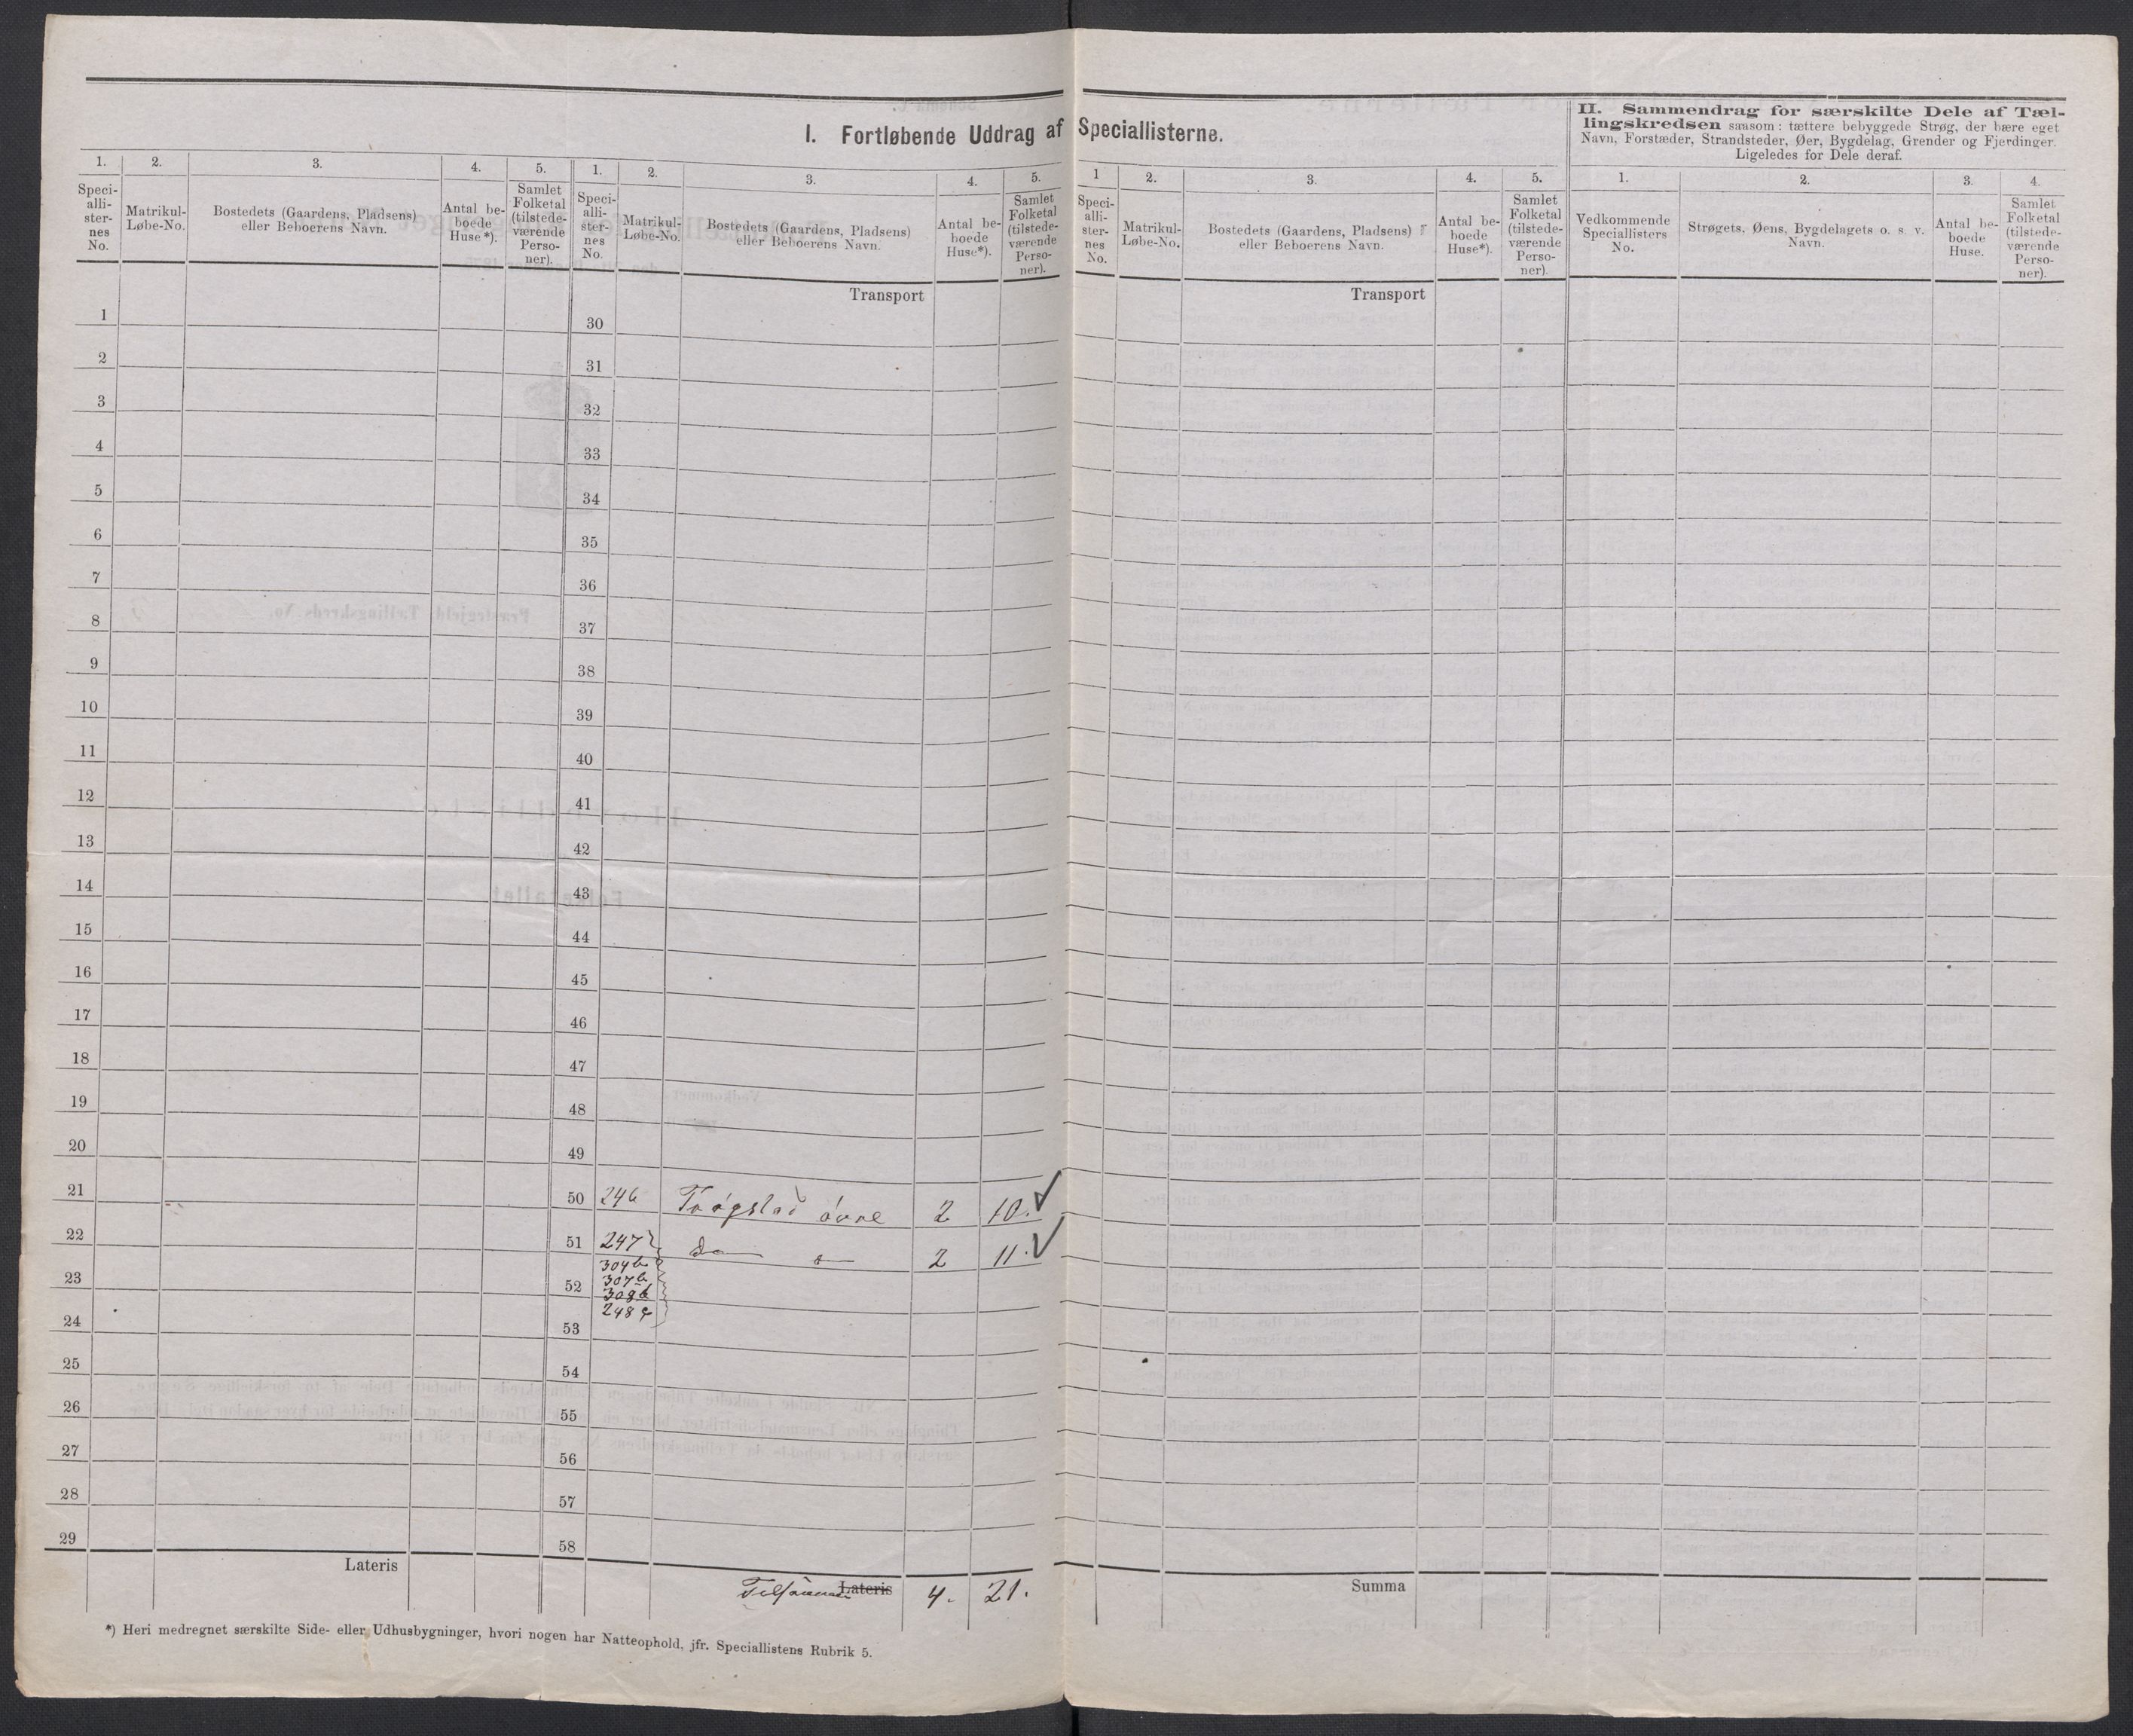 I. Fortløbende Uddrag af Speciallisterne.
1. 2. 3. 4. 5. 1. 2. 3. 4. 5.
Speci-
alli-
ster-
nes
No.
Matrikul-
Løbe-No.
Bostedets (Gaardens, Pladsens)
eller Beboerens Navn.
Antal be-
boede
Huse*).
Samlet
Folketal
(tilstede-
værende
Perso-
ner).
Speci-
alli-
ster-
nes
No.
Matrikul-
Løbe-No.
Bostedets (Gaardens, Pladsens)
eller Beboerens Navn.
Antal be-
boede
Huse*).
Samlet
Folketal
(tilstede-
værende
Perso-
ner).
Transport
1 30
2 31
3 32
4 33
5 34
6 35
7 36
8 37
9 38
10 39
11 40
12 41
13 42
14 43
15 44
16 45
17 46
18 47
19 48
20 49
21 50 246 Trøgstad øvre 2 10.
22 51 247 do 2 11.
304b
23 52 307b
308b
248
24 53
25 54
26 55
27 56
28 57
29 58
Lateris
Tilsammen Lateris 4. 21.
*) Heri medregnet særskilte Side- eller Udhusbygninger, hvori nogen har Natteophold, jfr. Speciallistens Rubrik 5.
1 2. 3. 4. 5.
Speci-
alli-
ster-
nes
No.
Matrikul-
Løbe-No.
Bostedets (Gaardens, Pladsens)
eller Beboerens Navn.
Antal be-
boede
Huse*).
Samlet
Folketal
(tilstede-
værende
Perso-
ner).
Transport
Summa
II. Sammendrag for særskilte Dele af Tæl-
lingskredsen saasom: tættere bebyggede Strøg, der bære eget
Navn, Forstæder, Strandsteder, Øer, Bygdelag, Grender og Fjerdinger.
Ligeledes for Dele deraf.
1. 2. 3. 4.
Vedkommende
Speciallisters
No.
Strøgets, Øens, Bygdelagets o. s. v.
Navn.
Antal be-
boede
Huse.
Samlet
Folketal
(tilstede-
værende
Perso-
ner).